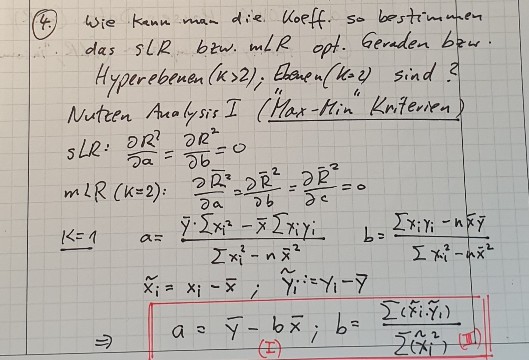 ④. Wie kann man die Koeff. so bestimmen
das sLR bzw. mLR opt. Geraden bzw.
Hyperebenen (K>2); Ebenen (K=2) sind?
Nutzen Analysis I ("Max-Min" Kriterien)
sLR: ∂R²/∂a = ∂R²/∂b = 0
mLR (K=2): ∂R̄²/∂a = ∂R̄²/∂b = ∂R̄²/∂c = 0
K=1 a = (ȳ·∑xᵢ² − x̄∑xᵢyᵢ)/(∑xᵢ² − nx̄²) b = (∑xᵢyᵢ − nx̄ȳ)/(∑xᵢ² − nx̄²)
x̃ᵢ = xᵢ − x̄ ; ỹᵢ := yᵢ − ȳ
⇒ a = ȳ − bx̄ ; b = ∑(x̃ᵢ·ỹᵢ)/∑(x̃ᵢ²)
(I) (II)